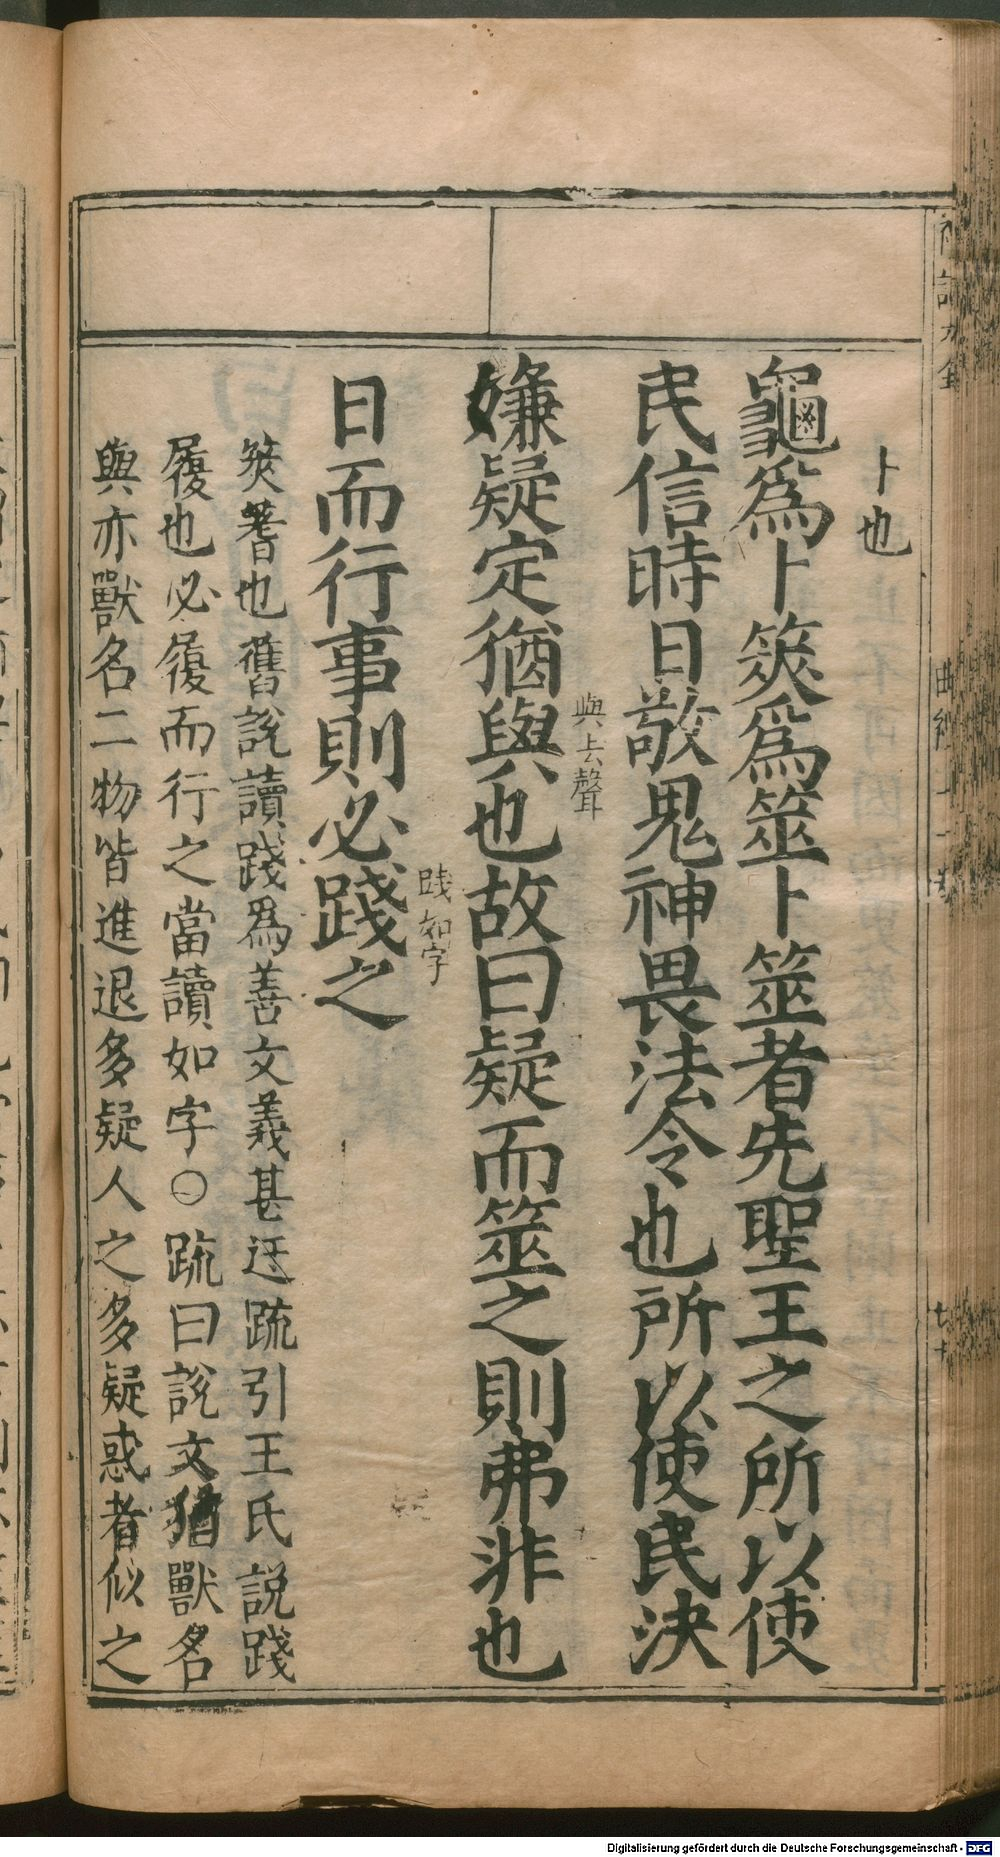 卜也
龜爲卜筴爲筮卜筮者先聖王之所以使
民信時日敬鬼神畏法令也所以使民決
與去聲
嫌疑定猶與也故曰疑而筮之則弗非也
踐如字
日而行事則必踐之
筴蓍也舊說讀踐爲善文義甚迂疏引王氏說踐
履也必履而行之當讀如字○疏曰說文猶獸名
與亦獸名二物皆進退多疑人之多疑惑者似之
Digitalisierung gefördert durch die Deutsche Forschungsgemeinschaft - DFG